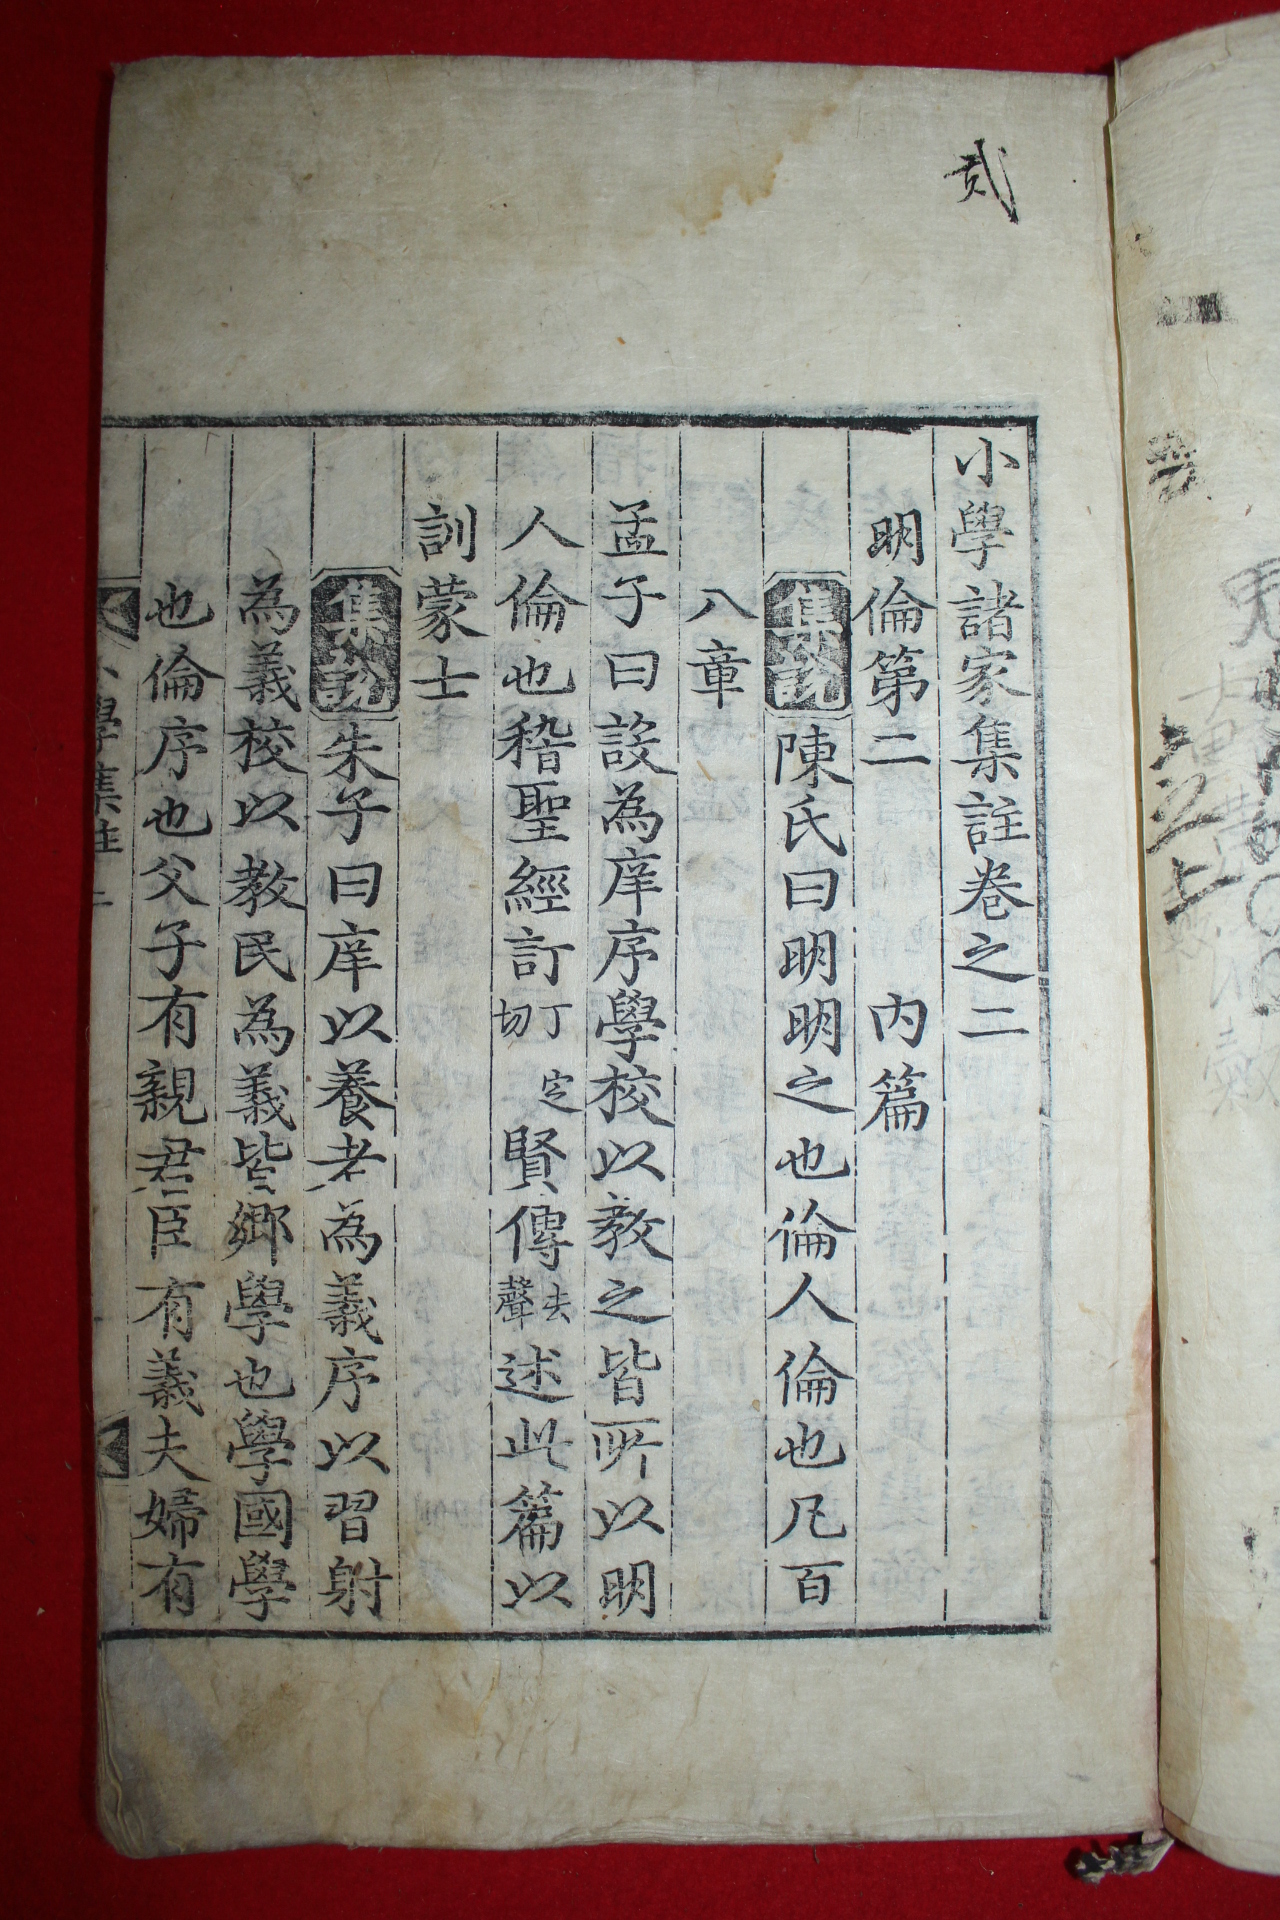 貳
小學諸家集註卷之二
明倫第二 內篇
集說 陳氏曰明明之也倫人倫也凡百
八章
孟子曰設為庠序學校以敎之皆所以明
人倫也稽聖經訂丁定切賢傳去聲述此篇以
訓蒙士
集說 朱子曰庠以養老為義序以習射
為義校以敎民為義皆鄕學也學國學
也倫序也父子有親君臣有義夫婦有
小學集註 二